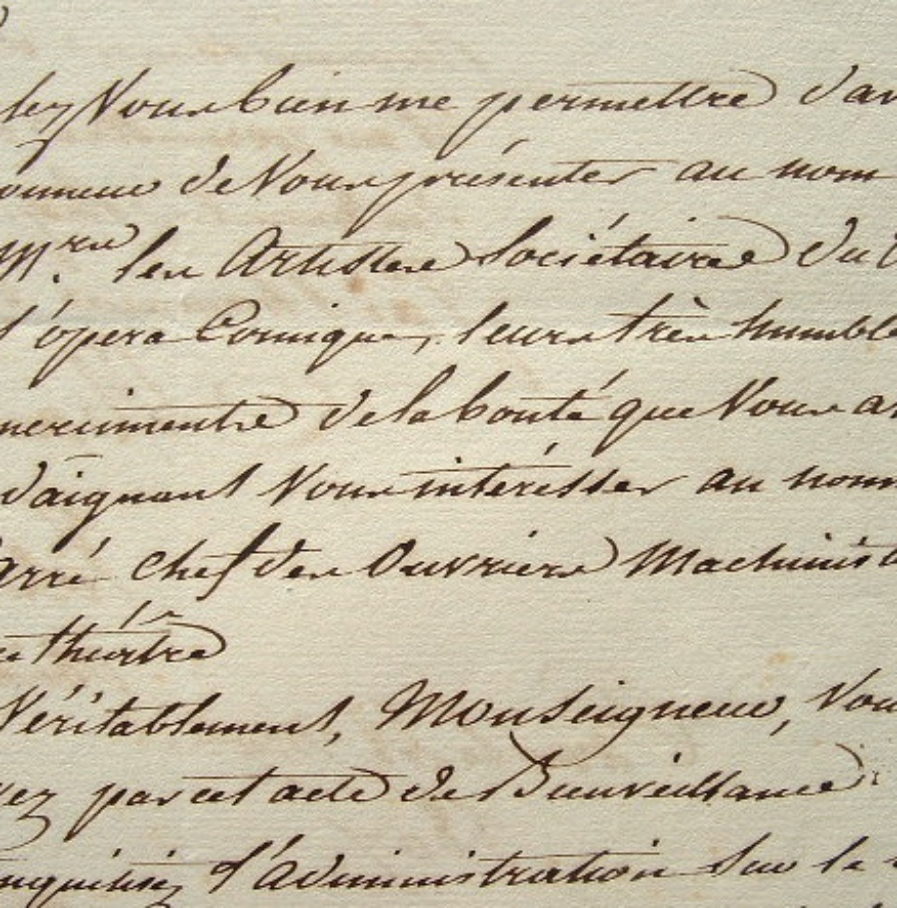 lez Vous bien me permettre d'av
onneur de Vous présenter au nom
M.rs les Artistes Sociétaires du
l'opera Comique, leurs très humble
mercimentrs de la bonté que Vous av
daignant Vous intéresser au nom
arré chef des Ouvriers Machinist
théâtre
Véritablement, Monseigneur, Vou
ez par cet acte de Bienveillance
nquilisiez l'Administration sur le